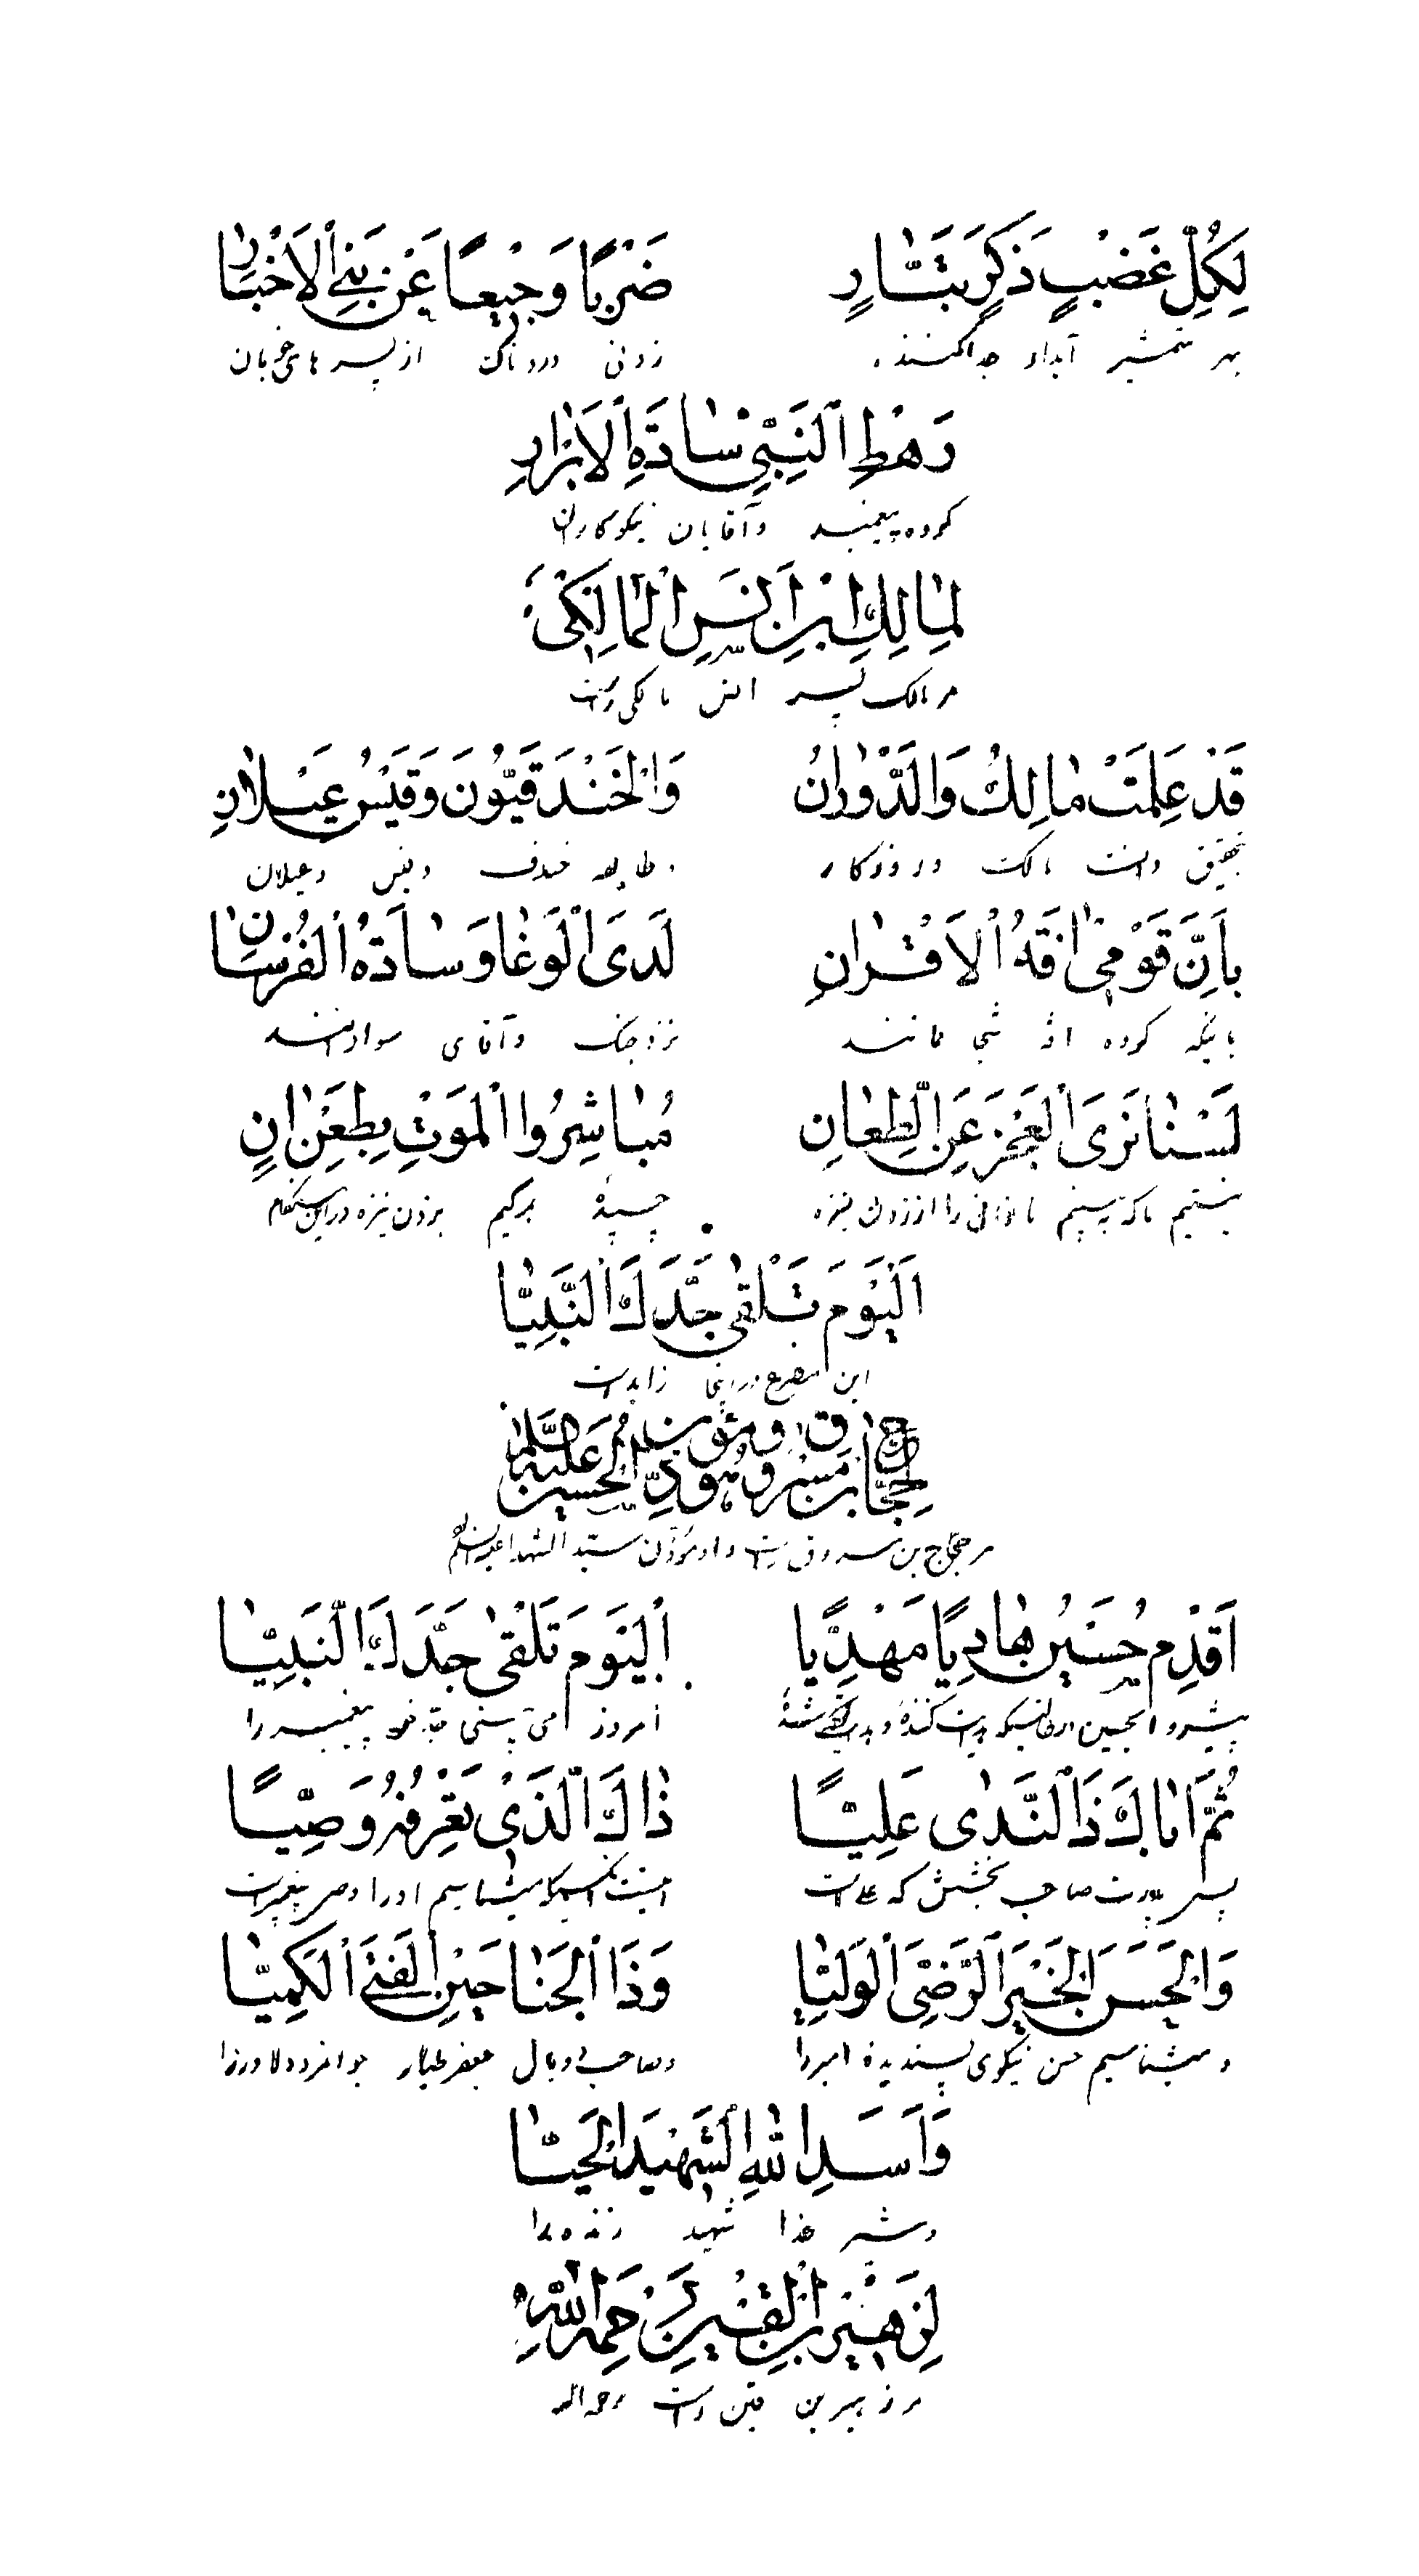 لِكُلِّ غَضْبٍ ذَكَرٍ بَتَّارٍ ضَرْبًا وَجِيعًا عَنْ بَنِي الْأَخْيَارِ
بهر شمشیر آبدار جداکننده زدنی دردناک از پسرهای خوبان
رَهْطِ النَّبِيِّ سَادَةِ الْأَبْرَارِ
کروه پیغمبر و آقایان نیکوکاران
لِمَالِكِ ابْنِ أَنَسِ الْمَالِكِيِّ
مر مالک پسر انس مالکی راست
قَدْ عَلِمَتْ مَالِكُ وَالدَّوْرَانُ وَالْخَنْدَقِيُّونَ وَقَيْسُ عَيْلَانِ
بتحقیق دانست مالک و روزکار و طایفه خندف و قیس و عیلان
بِأَنَّ قَوْمِي آفَةُ الْأَقْرَانِ لَدَى الْوَغَا وَسَادَةُ الْفُرْسَانِ
باینکه کروه آفه شجاعانند نزد جنک و آقای سوارانند
لَسْنَا نَرَى الْعَجْزَ عَنِ الطِّعَانِ مُبَاشِرُوا الْمَوْتِ بِطَعْنٍ اٰنٍ
نیستیم ما که ببینیم ناتوانی را از زدن نیزه چسپیدهٔ مرکیم بزدن نیزه در این هنکام
اَلْيَوْمَ تَلْقَى جَدَّكَ النَّبِيَّا
این مصرع در اینجا زاید است
لِحَجَّاجِ بْنِ مَسْرُوقٍ وَهُوَ مُؤَذِّنُ الْحُسَيْنِ عَلَيْهِ السَّلَامُ
مر حجاج بن مسروق راست و او مؤذن سید الشهدا علیه السلم
أَقْدِمْ حُسَيْنُ هَادِيًا مَهْدِيًّا اَلْيَوْمَ تَلْقَى جَدَّكَ النَّبِيَّا
پیشرو ایحسین در حالتیکه هدایت کنندهٔ و هدایت شدهٔ امروز می بینی جد خود پیغمبر را
ثُمَّ أَبَاكَ ذَا النَّدَى عَلِيًّا ذَاكَ الَّذِي نَعْرِفُهُ وَصِيًّا
پس پدرت صاحب بخشش که علی است انست انکسیکه میشناسیم او را وصی پیغمبر است
وَالْحَسَنَ الْخَيْرَ الرَّضِيَّ الْوَلِيَّا وَذَا الْجَنَاحَيْنِ الْفَتَى الْكَمِيَّا
و میشناسیم حسن نیکوی پسندیده امیر را و صاحب دو بال جعفر طیار جوانمرد دلاور را
وَأَسَدَ اللهِ الشَّهِيدَ الْحَيَّا
و شیر خدا شهید زنده را
لِزُهَيْرِ ابْنِ الْقَيْنِ رَحِمَهُ اللهُ
مر زهیر بن قین راست رحمه الله